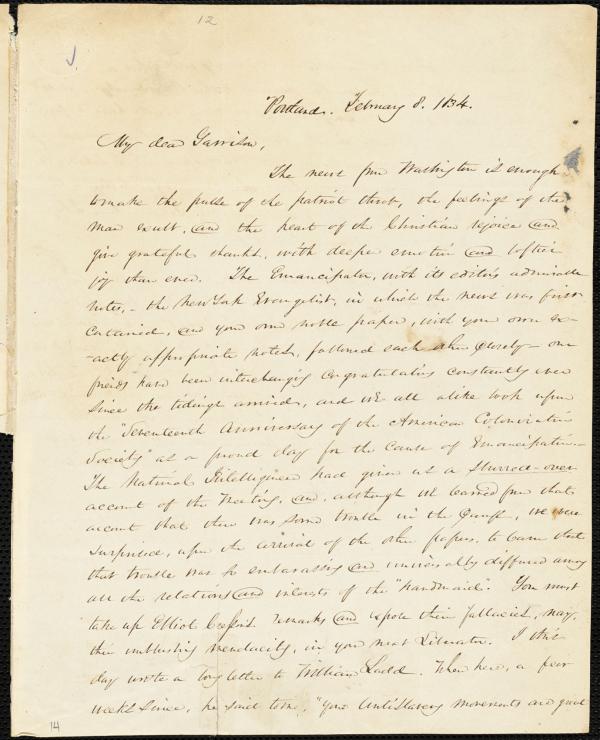 12
Portland. February 8. 1834.
My dear Garrison,
The news from Washington is enough
to make the pulse of the patriot throb, the feelings of the
man exult, and the heart of the Christian rejoice and
give grateful thanks, with deeper emotion and loftier
joy than ever. The Emancipator, with its editor's admirable
notes, - the New York Evangelist, in which the news was first
contained, and your own noble paper, with your own ex-
actly appropriate notes, followed each other closely - our
friends have been interchanging congratulations constantly ever
since the tidings arrived, and we all alike look upon
the "Seventeenth Anniversary of the American Colonization
Society" as a proud day for the cause of Emancipation.-
The National Intelligencer had given us a slurred-over
account of the Meeting, and, although we learned from that
account that there was some trouble in the Camp, we were
surprised, upon the arrival of the other papers, to learn that
that trouble was so embarrassing and universally diffused among
all the relations and interests of the "handmaid". You must
take up Elliot Cresson's remarks and expose their fallacies, nay,
their unblushing mendacity, in your next Liberator. I this
day wrote a long letter to William Ladd. When here, a few
weeks since, he said to me, "your Anti Slavery movements are good
14